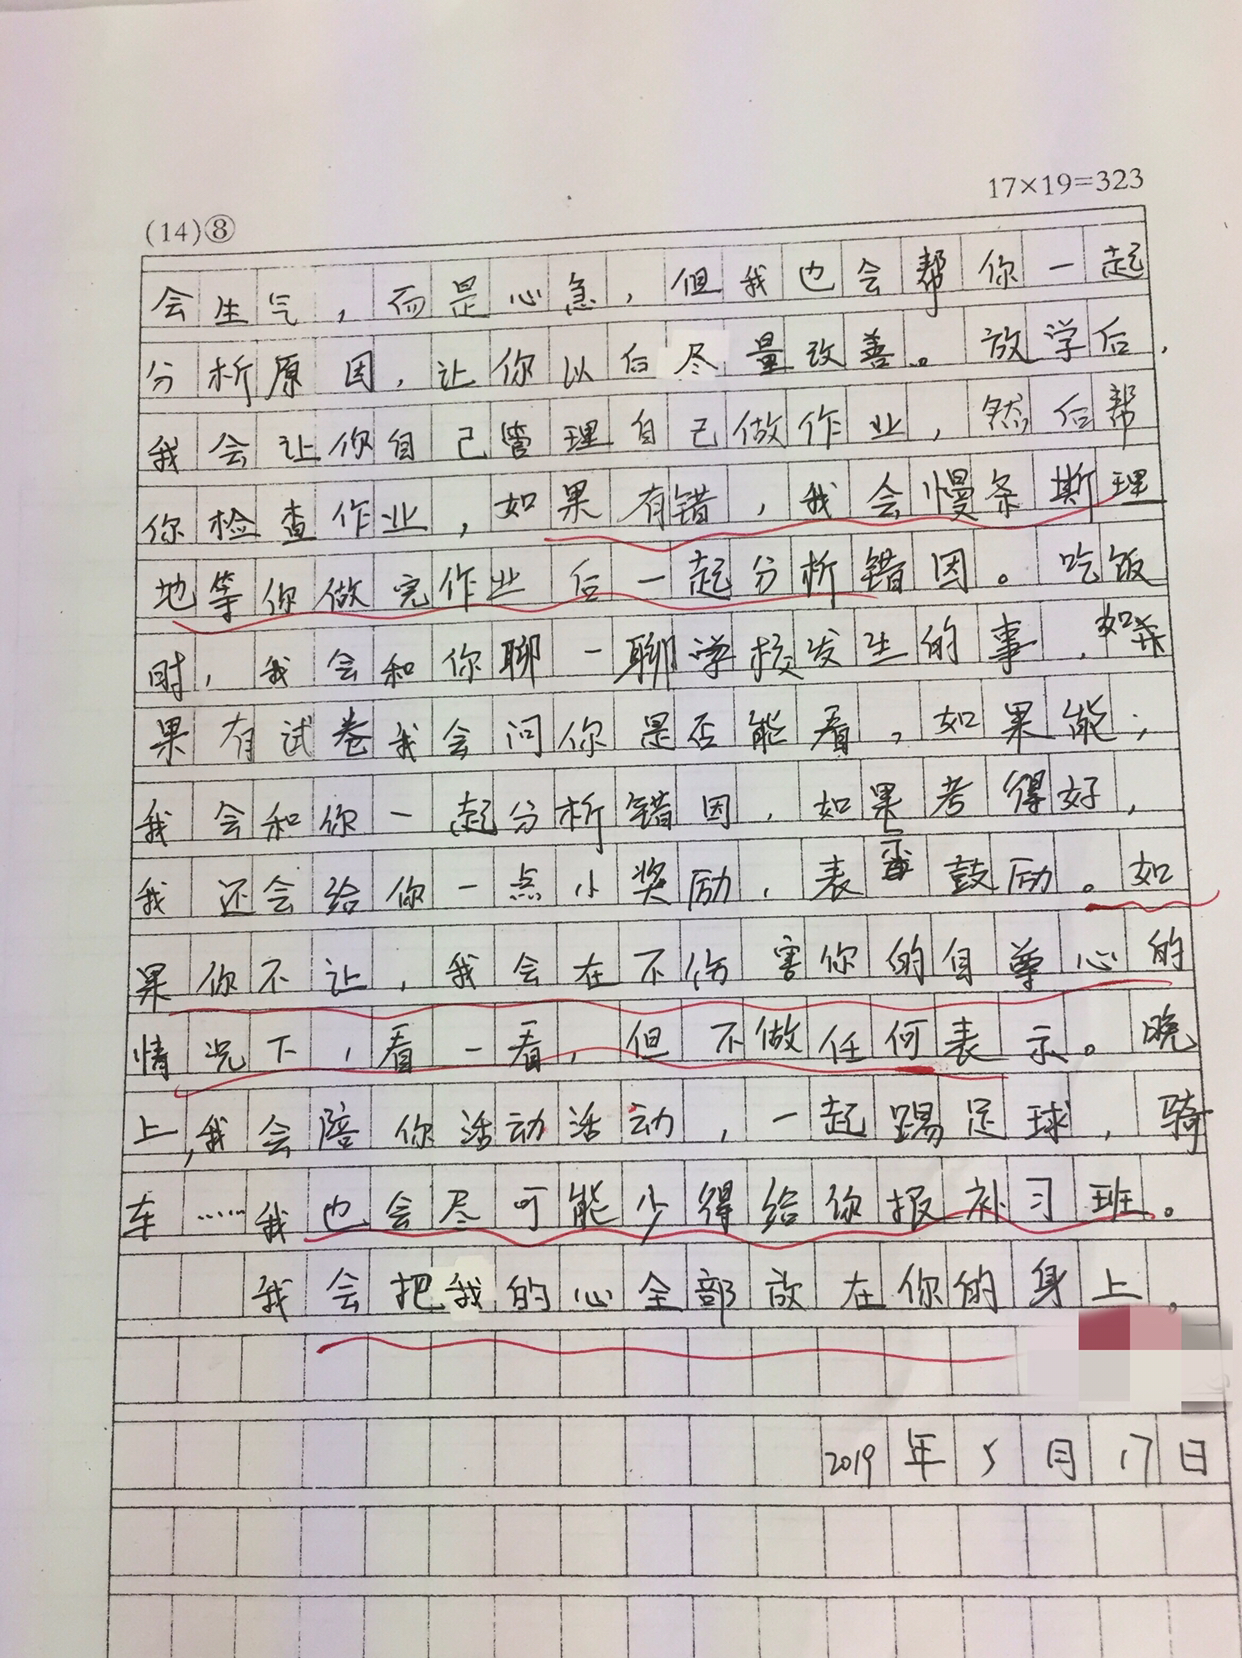 17×19=323
(14)⑧
会生气，而是心急，但我也会帮你一起
分析原因，让你以后尽量改善。放学后，
我会让你自己管理自己做作业，然后帮
你检查作业，如果有错，我会慢条斯理
地等你做完作业后一起分析错因。吃饭
时，我会和你聊一聊学校发生的事，如
果有试卷我会问你是否能看，如果能；
我会和你一起分析错因，如果考得好，
我还会给你一点小奖励，表 鼓励。如
果你不让，我会在不伤害你的自尊心的
情况下，看一看，但不做任何表示。晚
上，我会陪你活动活动，一起踢足球，骑
车……我也会尽可能少得给你报补习班。
我会把我的心全部放在你的身上。
2019年5月17日